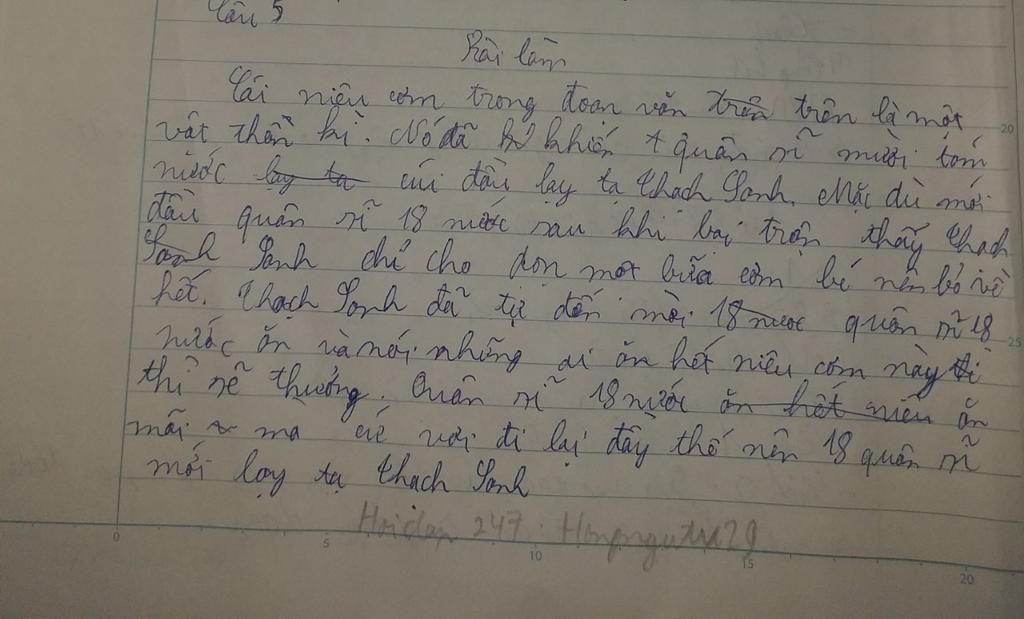 Câu 5
Bài làm
Cái niêu cơm trong đoạn văn trên trên là một
vật thần kì. Nó đã khiến quân sĩ mười tám
nước lạy tạ cúi đầu lạy tạ Thạch Sanh. Mặc dù mới
đầu quân sĩ 18 nước sau khi bại trận thấy Thạch
Sanh Sanh chỉ cho dọn một bữa cơm bé nên bỏ về
hết. Thạch Sanh đã tự đến mời 18 nước quân sĩ 18
nước ăn và nói những ai ăn hết niêu cơm này
thì sẽ thưởng. Quân sĩ 18 nước ăn hết niêu ăn
mãi mà cứ vơi đi lại đầy thế nên 18 quân sĩ
mới lạy tạ Thạch Sanh
Hoidap 247 : Honpngutu29
0 5 10 15 20
20
25